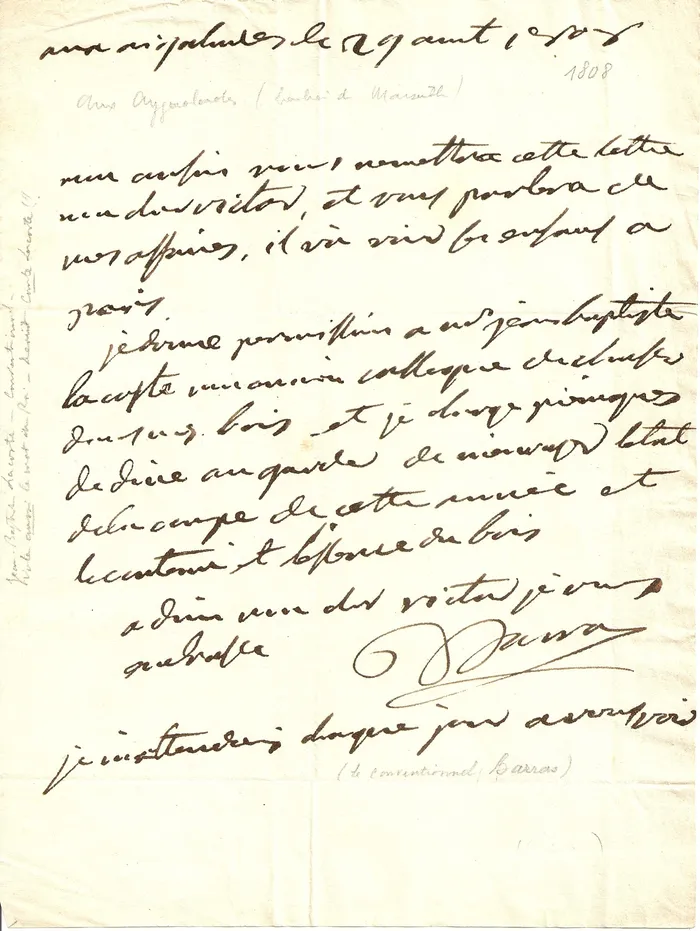 aux aigalades le 29 aout 1808
1808
Aux Aygualades (banlieue de Marseille)
mon cousin vous remettra cette lettre
mon cher victor, et vous parlera de
mes affaires, il va voir ses enfans a
paris
je donne permission a mr jean baptiste
lacoste mon ancien collegue de chasser
dans mes bois et je charge
de dire au garde de m'envoyer letat
dela coupe de cette année et
le contenu et lessence du bois
adieu mon cher victor je vous
embrasse
Barras
je m'attendrai chaque jour a vous voir
(le conventionnel Barras)
Jean Baptiste Lacoste – Conventionnel
vota aussi la mort du Roi – devint Comte Lacoste !!